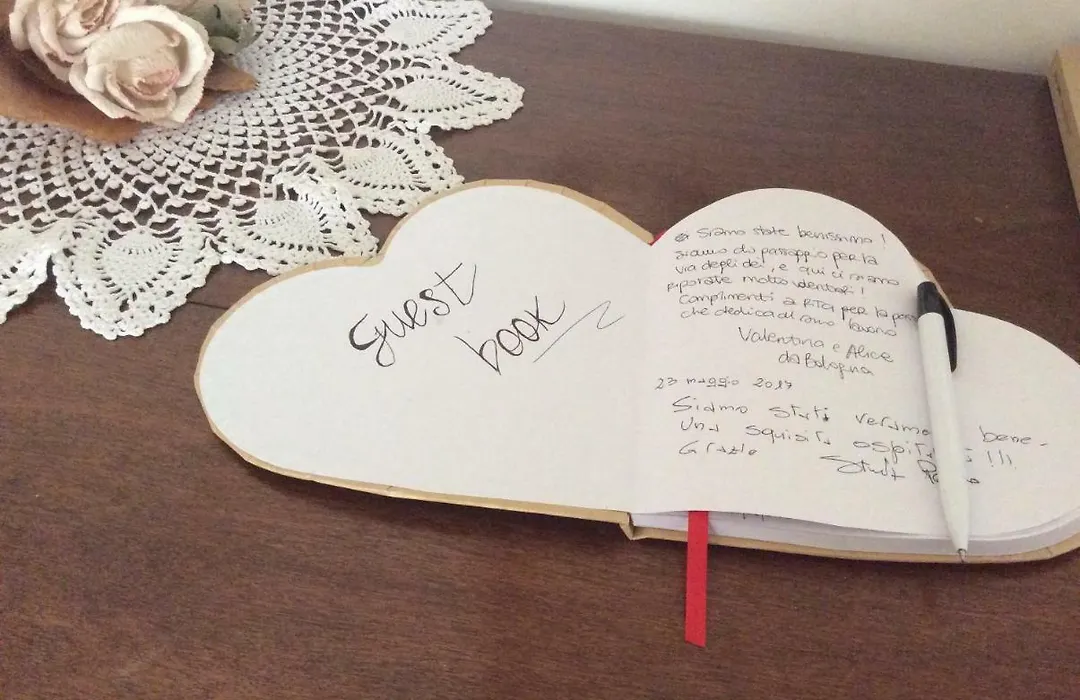 guest
book
Siamo state benissimo!
Siamo di passaggio per la
via degli dei, e qui ci siamo
riposate molto volentieri!
Complimenti a RITA per la
che dedica al suo lavoro
Valentina e Alice
da Bologna
23 maggio 2017
Siamo stati bene.
Una squisita !!!
Grazie